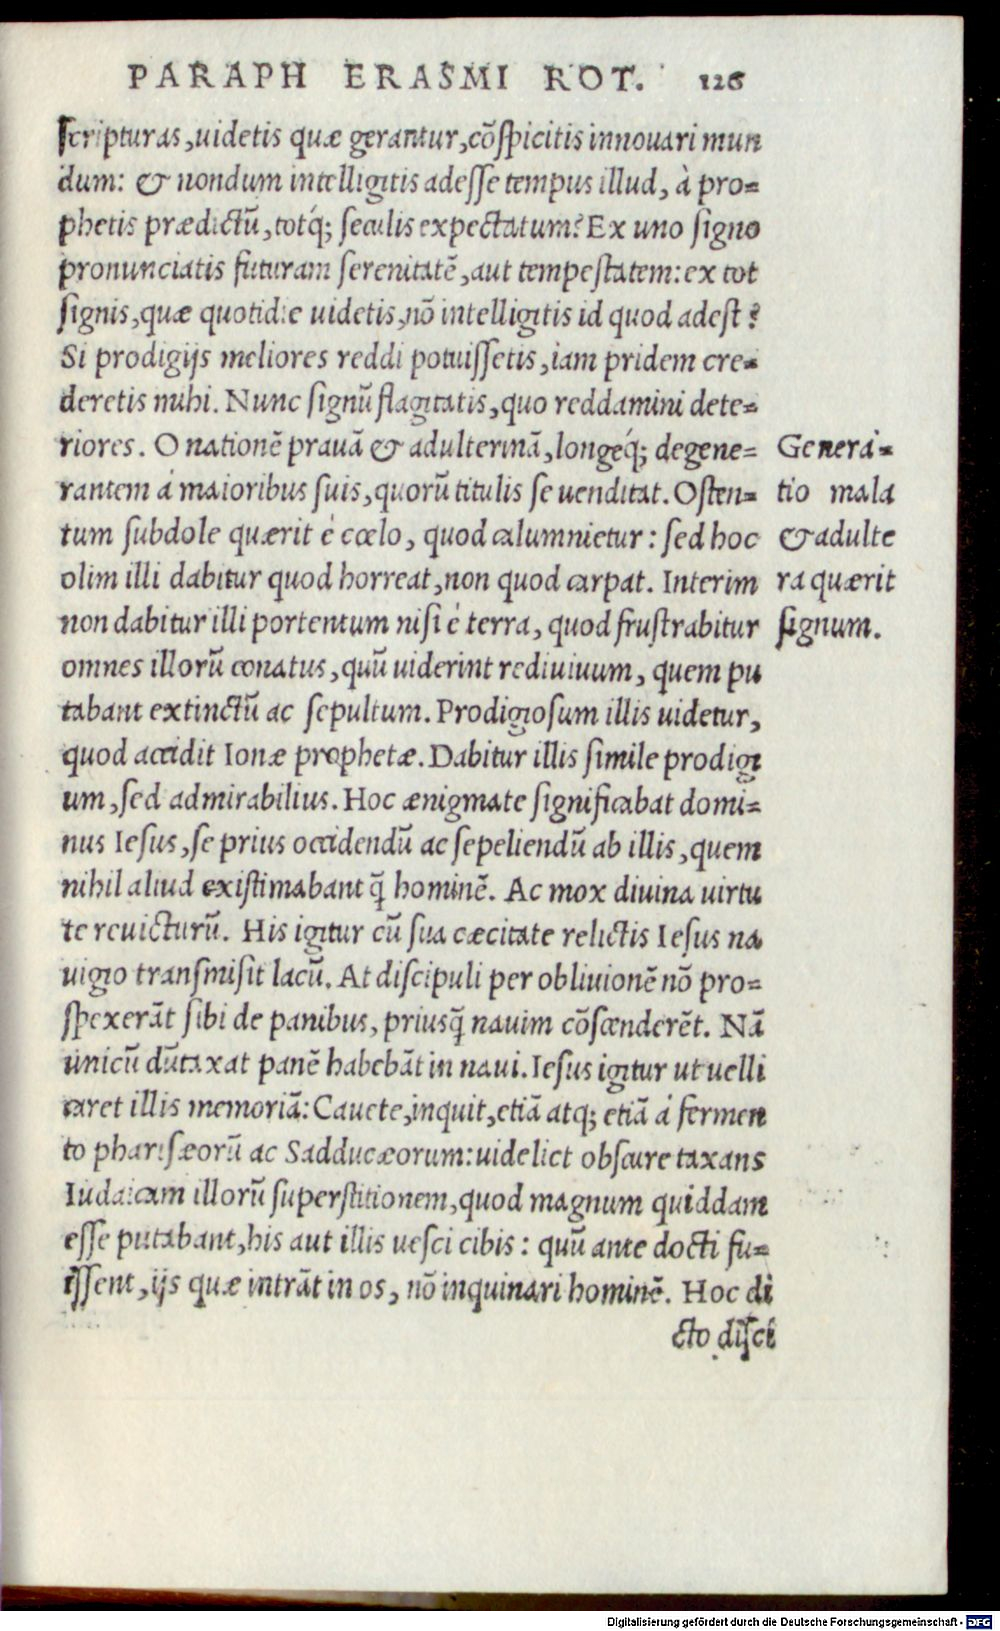 PARAPH ERASMI ROT. 126
scripturas, uidetis quæ gerantur, cōspicitis innouari mun
dum: & nondum intelligitis adesse tempus illud, à pro=
phetis prædictū, totq́; seculis expectatum? Ex uno signo
pronunciatis futuram serenitatē, aut tempestatem: ex tot
signis, quæ quotidie uidetis, nō intelligitis id quod adest?
Si prodigijs meliores reddi potuissetis, iam pridem cre=
deretis mihi. Nunc signū flagitatis, quo reddamini dete=
riores. O nationē prauā & adulterinā, longeq́; degene=
rantem á maioribus suis, quorū titulis se uenditat. Osten=
tum subdole quærit è cœlo, quod calumnietur: sed hoc
olim illi dabitur quod horreat, non quod carpat. Interim
non dabitur illi portentum nisi è terra, quod frustrabitur
omnes illorū conatus, quū uiderint rediuiuum, quem pu
tabant extinctū ac sepultum. Prodigiosum illis uidetur,
quod accidit Ionæ prophetæ. Dabitur illis simile prodigi
um, sed admirabilius. Hoc ænigmate significabat domi=
nus Iesus, se prius occidendū ac sepeliendū ab illis, quem
nihil aliud existimabant q̄ hominē. Ac mox diuina uirtu
te reuicturū. His igitur cū sua cæcitate relictis Iesus na
uigio transmisit lacū. At discipuli per obliuionē nō pro=
spexerāt sibi de panibus, priusq̄ nauim cōscenderēt. Nā
unicū dūtaxat panē habebāt in naui. Iesus igitur ut uelli
caret illis memoriā: Cauete, inquit, etiā atq; etiā á fermen
to pharisæorū ac Sadducæorum: uidelict obscure taxans
Iudaicam illorū superstitionem, quod magnum quiddam
esse putabant, his aut illis uesci cibis: quū ante docti fu=
issent, ijs quæ intrāt in os, nō inquinari hominē. Hoc di
cto disci
Generá=
tio mala
& adulte
ra quærit
signum.
Digitalisierung gefördert durch die Deutsche Forschungsgemeinschaft - DFG